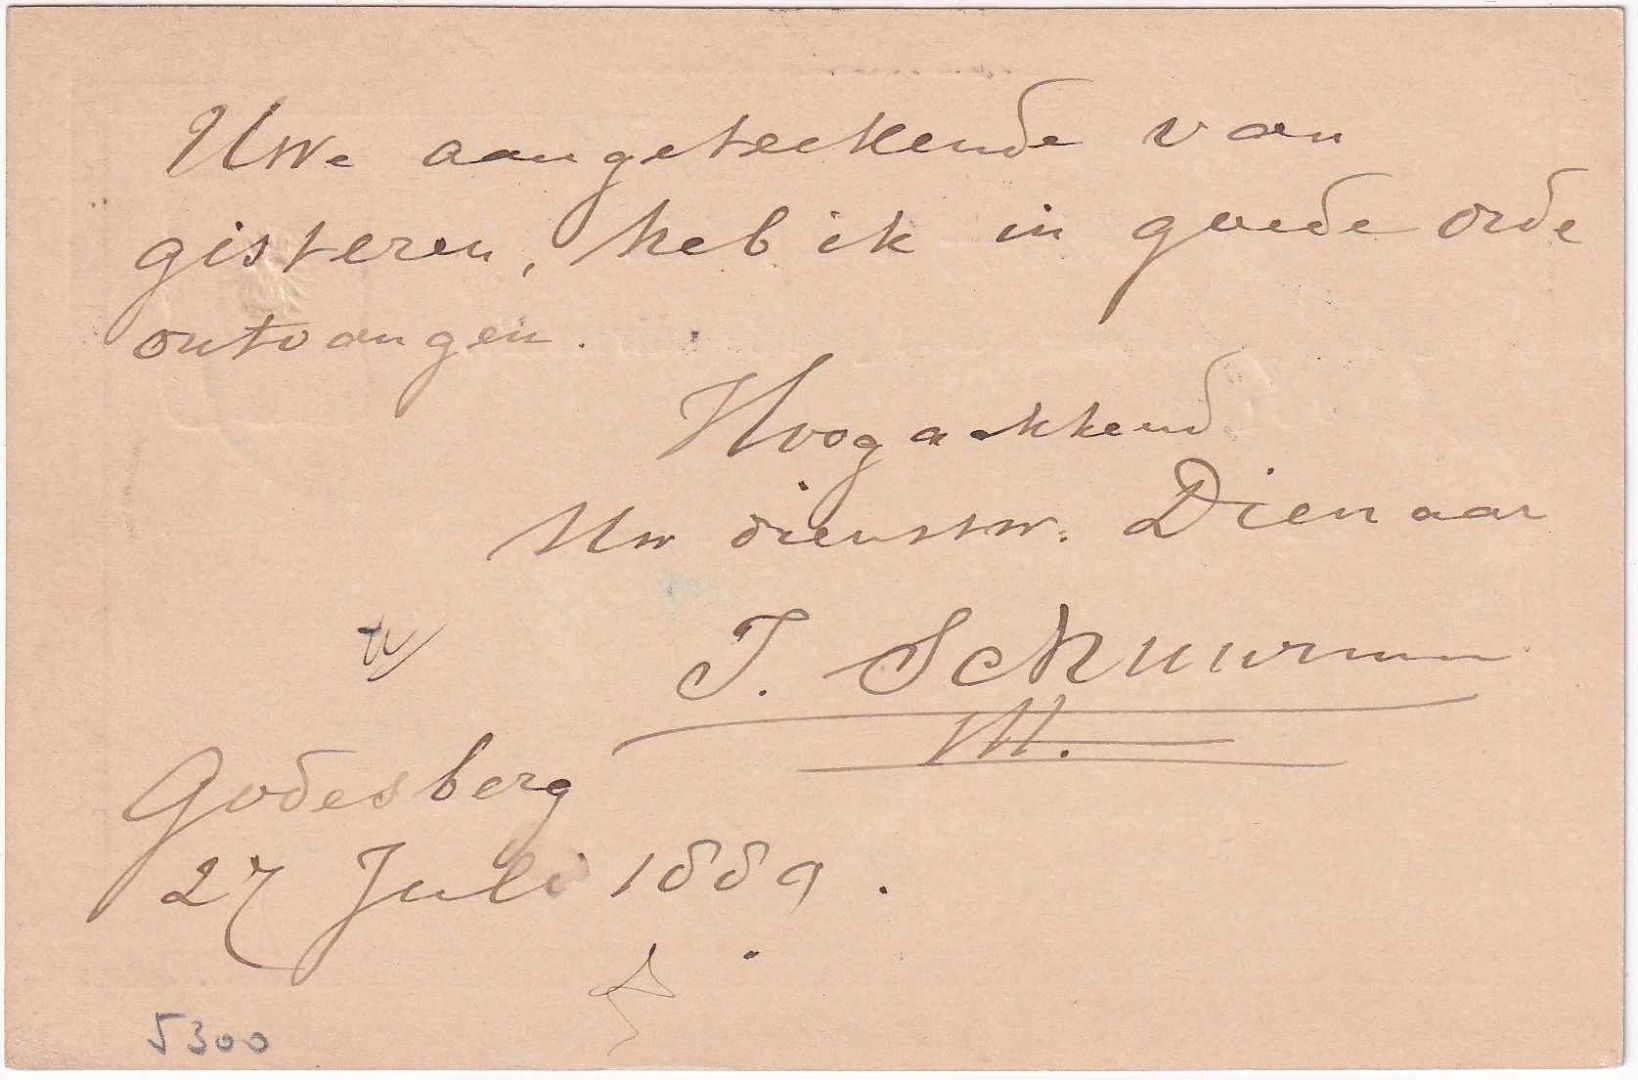 Uwe aangeteekende van
gisteren, heb ik in goede orde
ontvangen.
Hoogachtend
Uw dienstw. Dienaar
J. Schuurman
Godesberg
27 Juli 1889.
5300